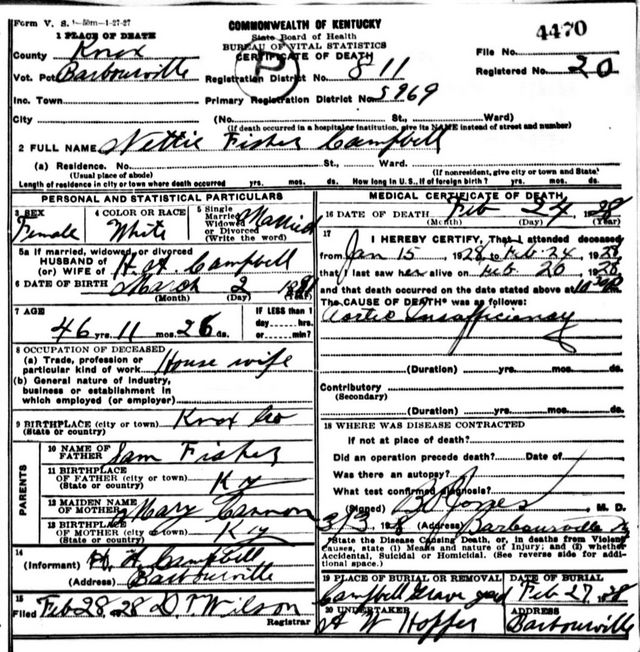 Form V. S. 1-50m-1-27-27
COMMONWEALTH OF KENTUCKY
State Board of Health
BUREAU OF VITAL STATISTICS
CERTIFICATE OF DEATH
4470
File No.
Registered No. 20
1 PLACE OF DEATH
County Knox
Vot. Pct. Barbourville
Registration District No. 811
Inc. Town
Primary Registration District No. 5969
City (No. St., Ward)
(If death occurred in a hospital or institution, give its NAME instead of street and number)
2 FULL NAME Nettie Fisher Campbell
(a) Residence. No. St., Ward.
(Usual place of abode) (If nonresident, give city or town and State)
Length of residence in city or town where death occurred yrs. mos. ds. How long in U. S., if of foreign birth? yrs. mos. ds.
PERSONAL AND STATISTICAL PARTICULARS
3 SEX
Female
4 COLOR OR RACE
White
5 Single
Married
Widowed
or Divorced
(Write the word)
Married
5a If married, widowed, or divorced
HUSBAND of
(or) WIFE of H. H. Campbell
6 DATE OF BIRTH March 2 1881
(Month) (Day) (Year)
7 AGE
46 yrs. 11 mos. 26 ds.
IF LESS than 1
day hrs.
or min?
8 OCCUPATION OF DECEASED
(a) Trade, profession or
particular kind of work House wife
(b) General nature of industry,
business or establishment in
which employed (or employer)
9 BIRTHPLACE (city or town) Knox Co
(State or country)
PARENTS
10 NAME OF
FATHER Sam Fisher
11 BIRTHPLACE
OF FATHER (city or town) Ky
(State or country)
12 MAIDEN NAME
OF MOTHER Mary Cannon
13 BIRTHPLACE
OF MOTHER (city or town) Ky
(State or country)
14
(Informant) H. H. Campbell
(Address) Barbourville
15
Filed Feb 28, 28 D. T. Wilson
Registrar
MEDICAL CERTIFICATE OF DEATH
16 DATE OF DEATH Feb 24 1928
(Month) (Day) (Year)
17
I HEREBY CERTIFY, That I attended deceased
from Jan 15, 1928, to Feb. 24, 1928,
that I last saw her alive on Feb. 20, 1928,
and that death occurred on the date stated above at
The CAUSE OF DEATH* was as follows:
Aortic Insufficiency
(Duration) yrs. mos. ds.
Contributory
(Secondary)
(Duration) yrs. mos. ds.
18 WHERE WAS DISEASE CONTRACTED
If not at place of death?
Did an operation precede death? Date of
Was there an autopsy?
What test confirmed diagnosis?
(Signed) Jones M. D.
3/3, 1928 (Address) Barbourville Ky
*State the Disease Causing Death, or, in deaths from Violent
Causes, state (1) Means and nature of Injury; and (2) whether
Accidental, Suicidal or Homicidal. (See reverse side for addi-
tional space.)
19 PLACE OF BURIAL OR REMOVAL
Campbell Grave yard
DATE OF BURIAL
Feb 27, 28
20 UNDERTAKER
A W Hopper
ADDRESS
Barbourville